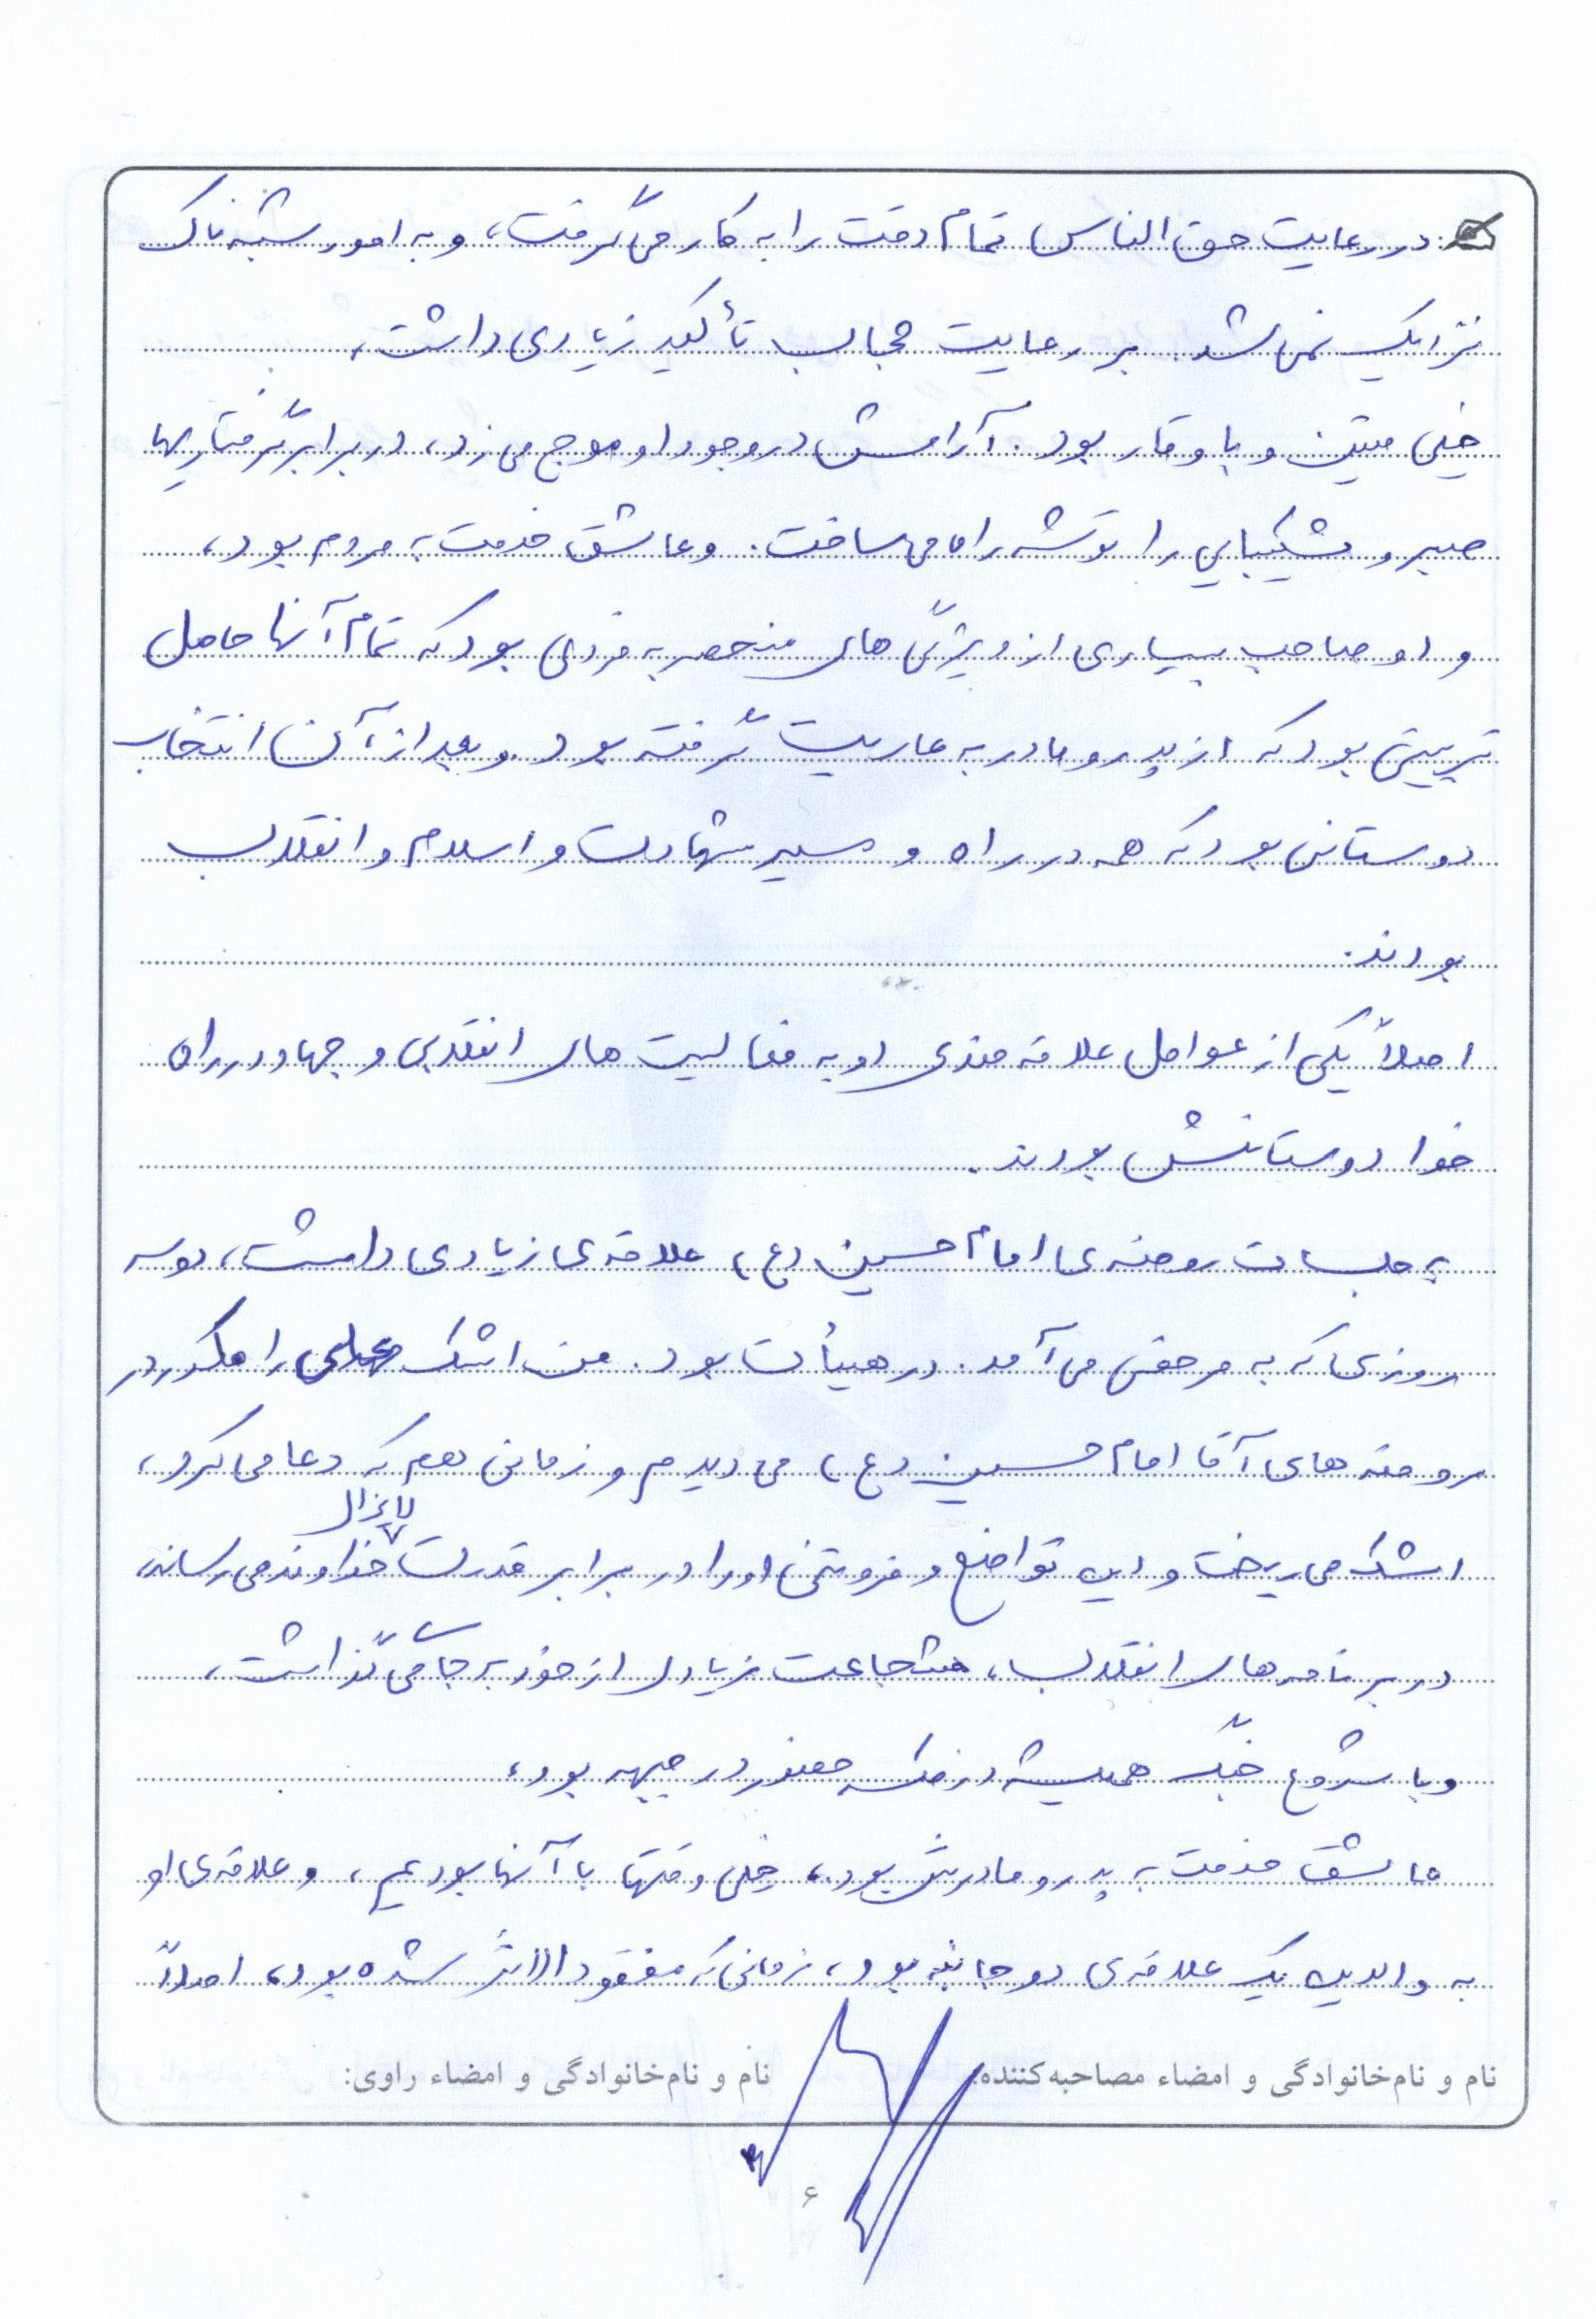 در رعایت حق الناس تمام دقت را به کار می‌گرفت، و به امور شبهه ناک
نزدیک نمی شد. بر رعایت حجاب تأکید زیادی داشت،
خیلی متین و با وقار بود. آرامش در وجود او موج می زد، در برابر گرفتاریها
صبر و شکیبایی را توشه راه می ساخت. و عاشق خدمت به مردم بود،
و او صاحب بسیاری از ویژگی های منحصر به فردی بود که تمام آنها حاصل
تربیتی بود که از پدر و مادر به عاریت گرفته بود و بعد از آن انتخاب
دوستانی بود که همه در راه و مسیر شهادت و اسلام و انقلاب
بودند.
اصلاً یکی از عوامل علاقه مندی او به فعالیت های انقلابی و جهاد در راه
خدا دوستانش بودند.
به جلسات روضه ی امام حسین (ع) علاقه ی زیادی داشت، دو سه
روزی که به مرخصی می آمد. در هیأت بود. من اشک علی را مکرر در
روضه های آقا امام حسین (ع) می دیدم و زمانی هم که دعا می کرد،
اشک می ریخت و این تواضع و فروتنی او را در برابر قدرت لایزال خداوند می رساند،
در برنامه های انقلاب، شجاعت زیادی از خود به جا می گذاشت،
و با شروع جنگ همیشه در حضور در جبهه بود،
عاشق خدمت به پدر و مادرش بود، خیلی وقتها با آنها بودیم، و علاقه ی او
به والدین یک علاقه ی دو جانبه بود، زمانی که مفقود الاثر شده بود، اصلاً
نام و نام‌خانوادگی و امضاء مصاحبه‌کننده:
نام و نام‌خانوادگی و امضاء راوی:
۶